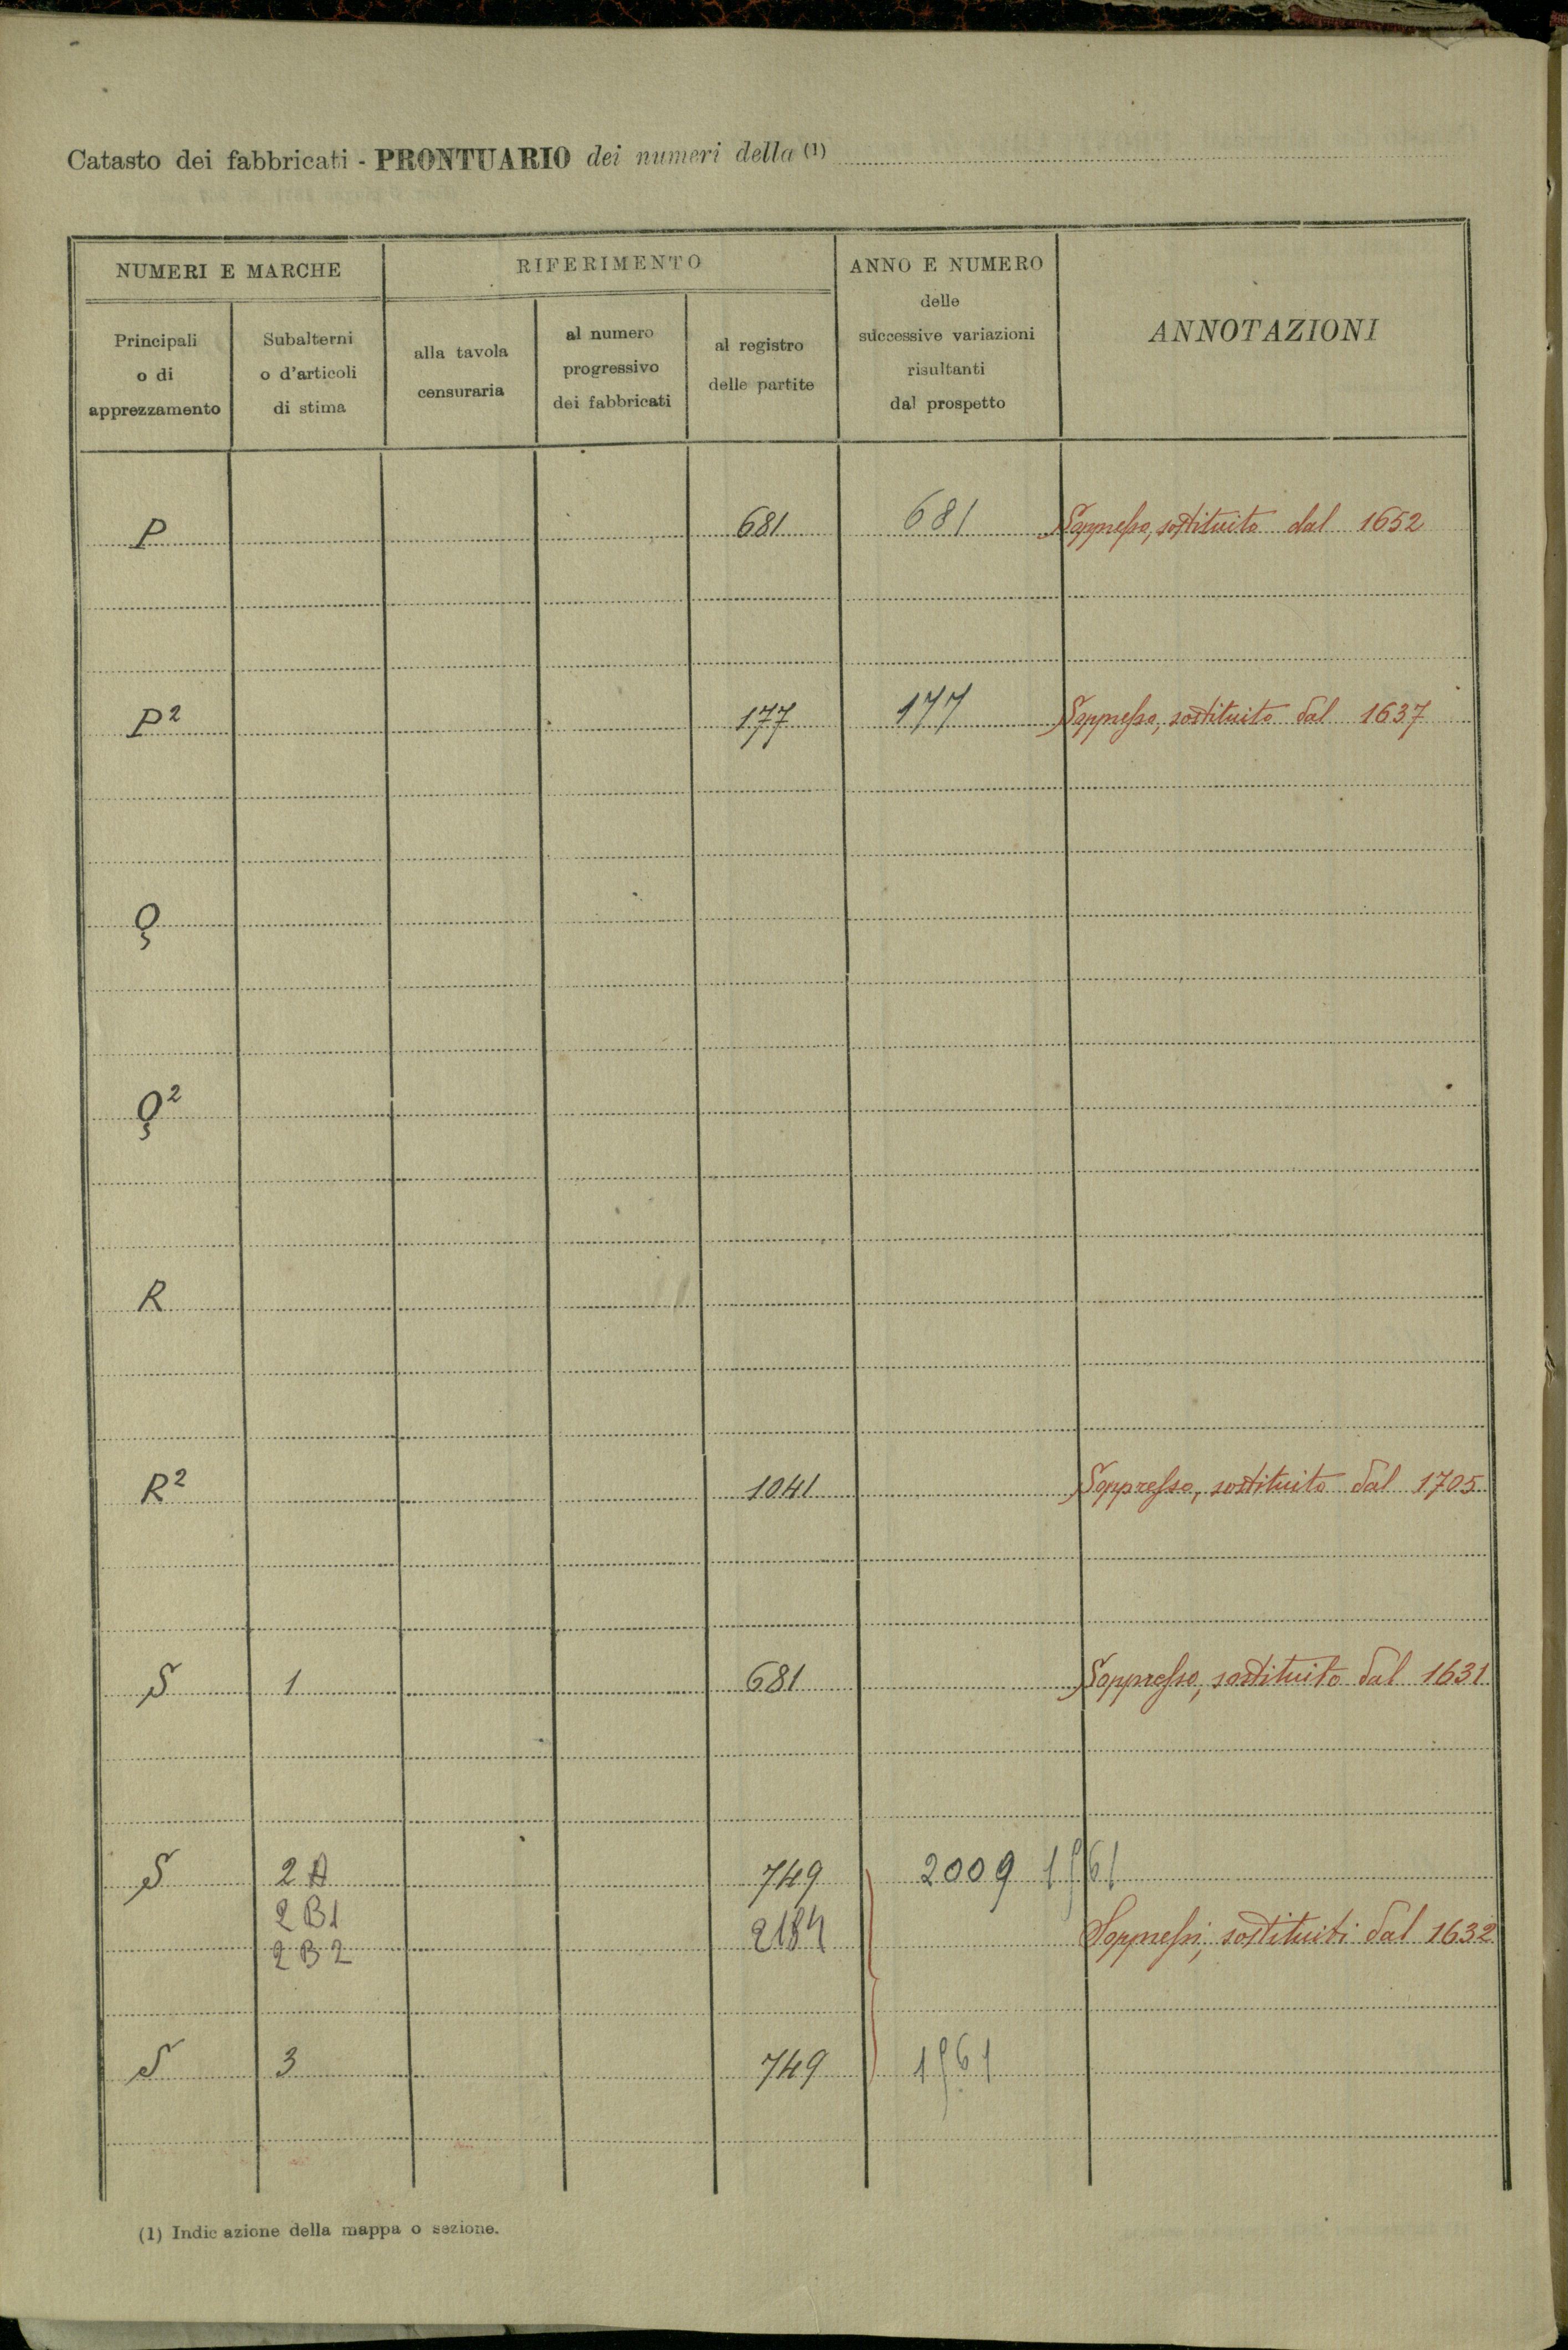 Catasto dei fabbricati - PRONTUARIO dei numeri della (1)
NUMERI E MARCHE
RIFERIMENTO
ANNO E NUMERO
delle
successive variazioni
risultanti
dal prospetto
ANNOTAZIONI
Principali
o di
apprezzamento
Subalterni
o d'articoli
di stima
alla tavola
censuraria
al numero
progressivo
dei fabbricati
al registro
delle partite
P 681 681 Soppresso, sostituito dal 1652
P² 177 177 Soppresso, sostituito dal 1637
Q
Q²
R
R² 1041 Soppresso, sostituito dal 1705
S 1 681 Soppresso, sostituito dal 1631
S 2A 749 2009 1961
2B1 2184 Soppressi, sostituiti dal 1632
2B2
S 3 749 1961
(1) Indicazione della mappa o sezione.